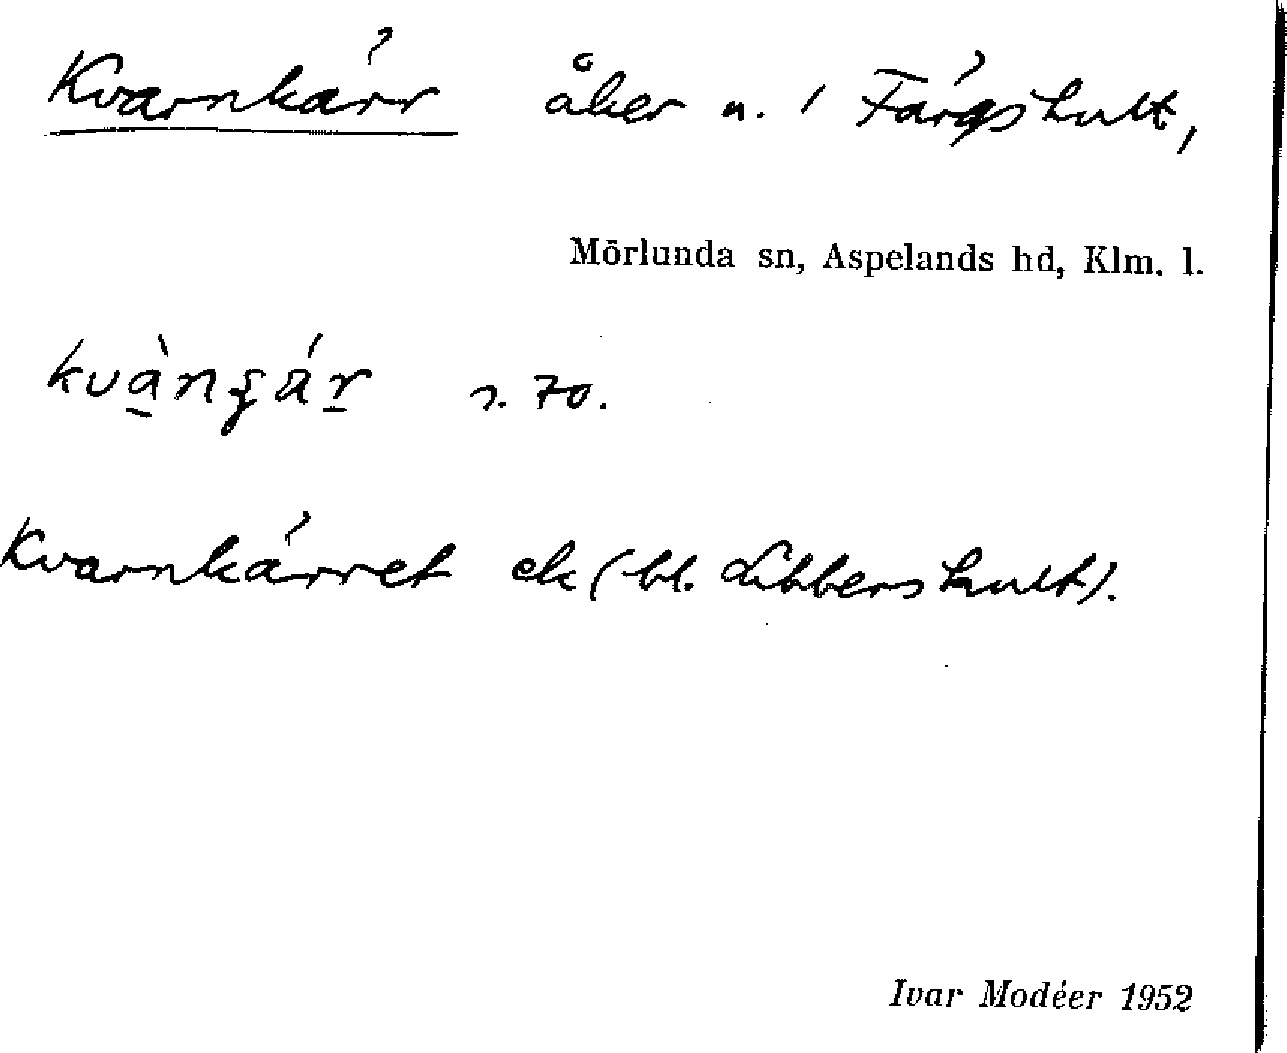 Kvarnkärr åker n. i Färgshult,
Mörlunda sn, Aspelands hd, Klm. l.
s. 70.
Kvarnkärret ek (bl. Libbershult).
Ivar Modéer 1952